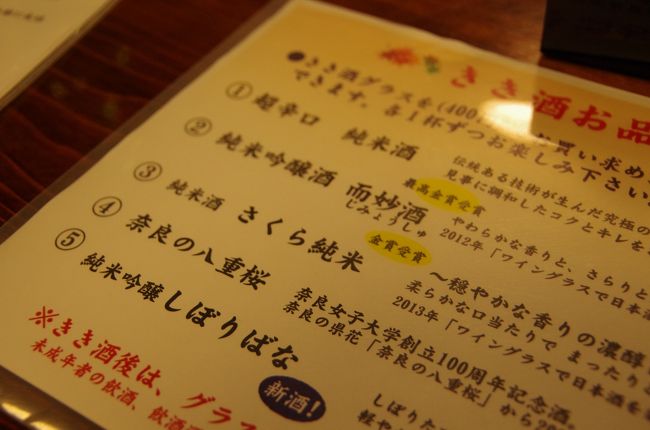 きき酒お品
●きき酒グラスを(400 お買い求め
できます。各1杯ずつお楽しみ下さい
① 超辛口 純米酒
伝統ある技術が生んだ究極の
見事に調和したコクとキレを
② 純米吟醸酒 而妙酒
じみょうしゅ
最高金賞受賞
やわらかな香りと、さらりと
2012年「ワイングラスで日本
③ 純米酒 さくら純米
金賞受賞
～穏やかな香りの濃醇
柔らかな口当たりで まったり
2013年「ワイングラスで日本酒を
④ 奈良の八重桜
奈良女子大学創立100周年記念酒。
奈良の県花「奈良の八重桜」から
⑤ 純米吟醸 しぼりばな
新酒!
しぼりた
※きき酒後は、グラ
未成年者の飲酒、飲酒